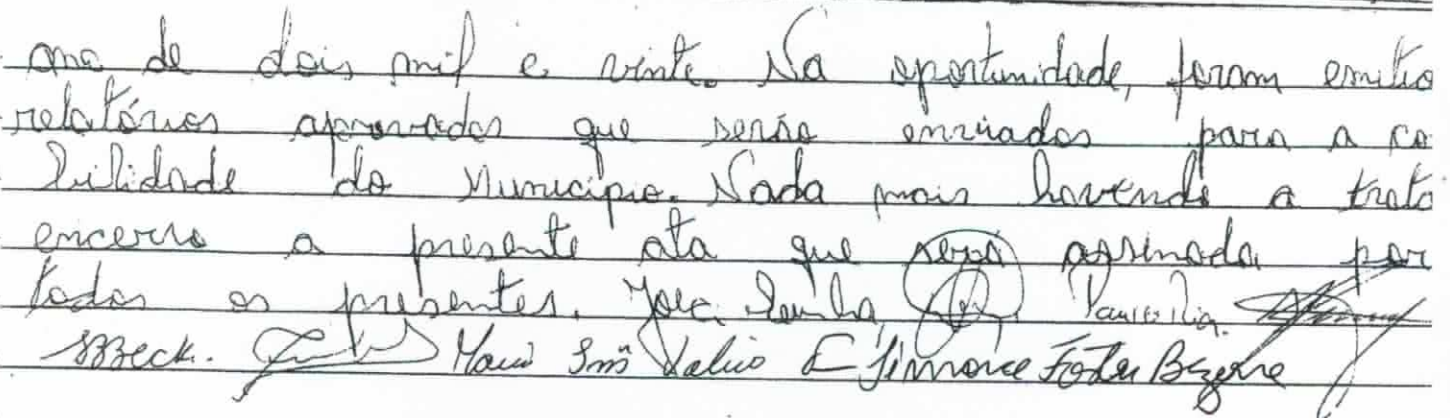 ano de dois mil e vinte. Na oportunidade, foram emitio
relatórios aprovados que serão enviados para a co
bilidade do Município. Nada mais havendo a trata
encerro a presente ata que será assinada por
todos os presentes.
SBeck. Simone Bezerra